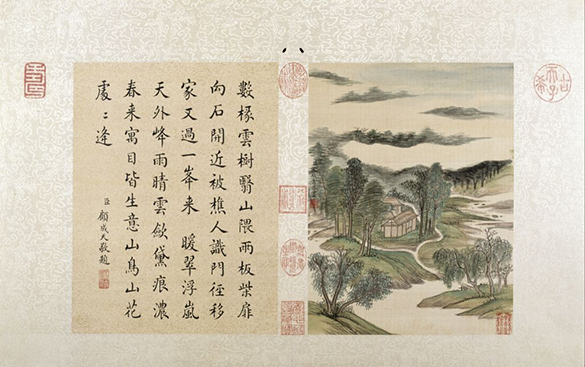 數椽雲樹翳山隈兩板柴扉
向石開近被樵人識門徑移
家又過一峯來　暖翠浮嵐
天外峰雨晴雲斂黛痕濃
春来寓目皆生意山鳥山花
處〻逢
臣顧成天敬題